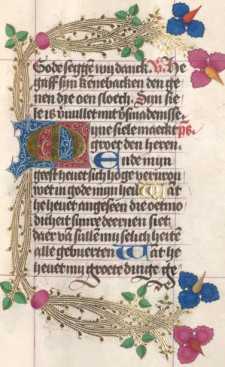 Gode seggē wij danck. V. He
gaff sijn kēnebacken den ge
nen dye oen sloech. Sijn sie
le is vuullet mit
Myne siele maeckt ps.
groet den heren.
Ende mijn
geest heuet sich hoge verurou
wet in gode mijn heil Wāt
he heuet angeseen die oetmo
dicheit sijnre deernen siet
daer vā sullē mij selich heitē
alle gebuerten Wāt he
heuet mij groete dinge ge